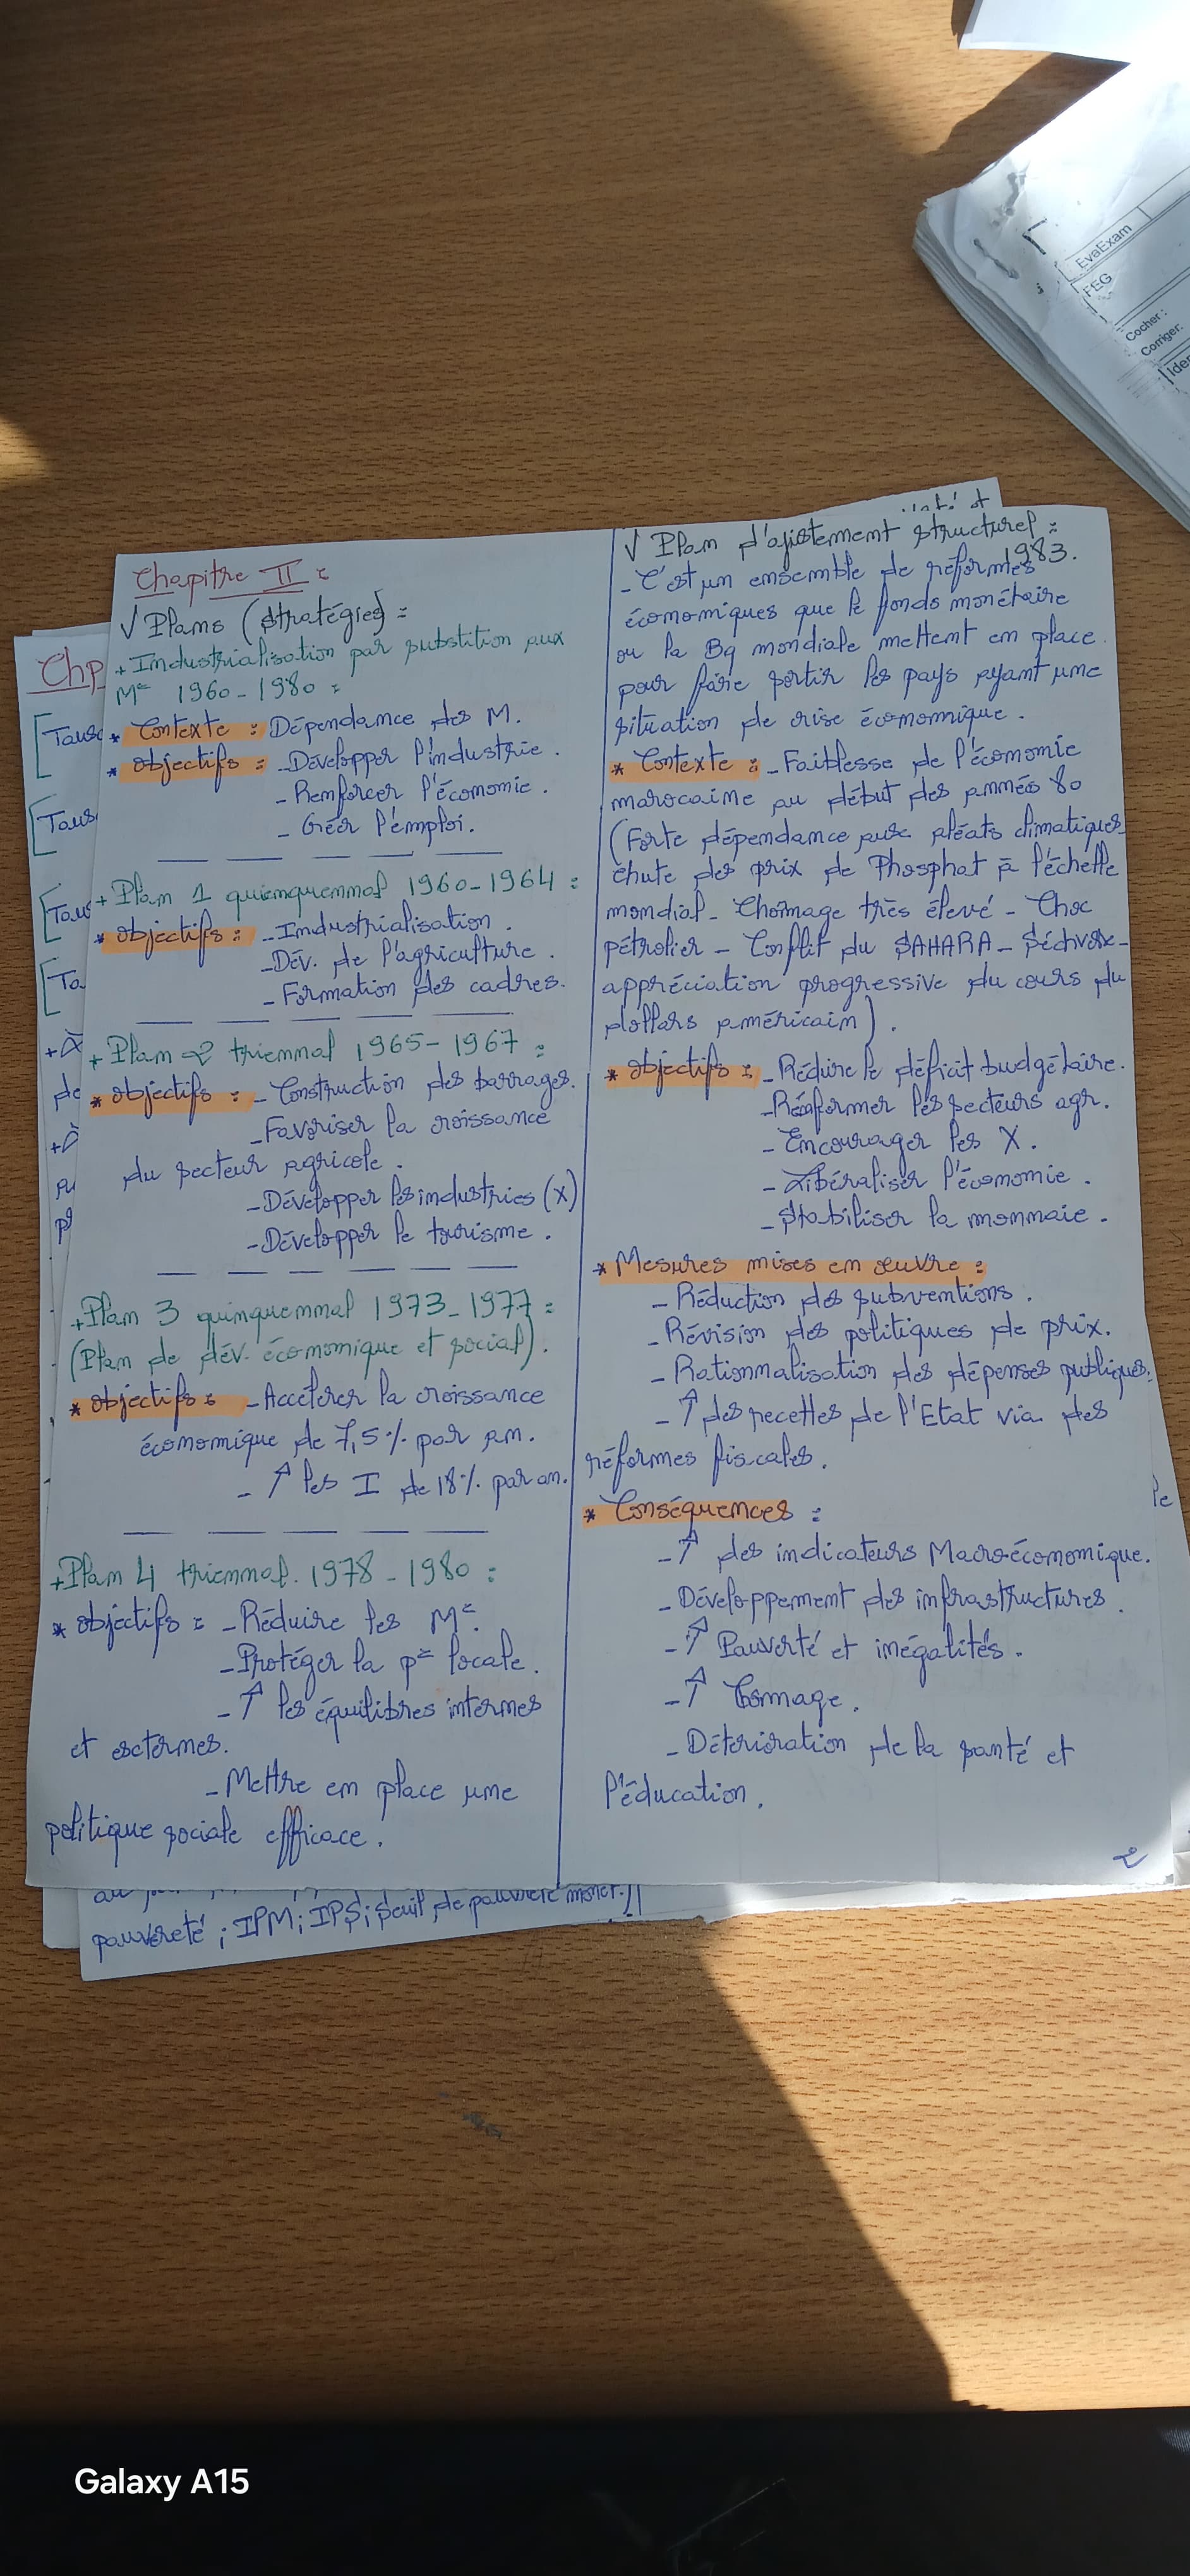 Chapitre II :
√ Plans (Stratégies) :
+ Industrialisation par substition aux
M^ce 1960-1980 :
* Contexte : Dépendance des M.
* Objectifs : - Développer l'industrie.
- Renforcer l'économie.
- Créer l'emploi.
+ Plan 1 quienquennal 1960-1964 :
* Objectifs : - Industrialisation.
- Dév. de l'agriculture.
- Formation des cadres.
+ Plan 2 triennal 1965-1967 :
* Objectifs : - Construction des barrages.
- Favoriser la croissance
du secteur agricole.
- Développer les industries (X)
- Développer le tourisme.
+ Plan 3 quinquennal 1973-1977 :
(Plan de dév. économique et social).
* Objectifs : - Accélérer la croissance
économique de 7,5% par an.
- ↑ les I de 18% par an.
+ Plan 4 triennal. 1978-1980 :
* Objectifs : - Réduire les M^ce.
- Protéger la p^ce locale.
- ↑ les équilibres internes
et externes.
- Mettre en place une
politique sociale efficace.
√ Plan d'ajustement structurel :
1983.
- C'est un ensemble de réformes
économiques que le fonds monétaire
ou la Bq mondiale mettent en place
pour faire sortir les pays ayant une
situation de crise économique.
* Contexte : - Faiblesse de l'économie
marocaine au début des années 80
(Forte dépendance aux aléats climatiques
chute des prix de Phosphat à l'échelle
mondial - Chômage très élevé - Choc
pétrolier - Conflit du SAHARA -
appréciation progressive du cours du
dollars américain).
* Objectifs : - Réduire le déficit budgétaire.
- Réformer les secteurs agr.
- Encourager les X.
- Libéraliser l'économie.
- Stabiliser la monnaie.
* Mesures mises en œuvre :
- Réduction des subventions.
- Révision des politiques de prix.
- Rationnalisation des dépenses publiques.
- ↑ des recettes de l'Etat via des
réformes fiscales.
* Conséquences :
- ↑ des indicateurs Macro-économique.
- Développement des infrastructures.
- ↑ Pauverté et inégalités.
- ↑ Chomage.
- Déterioration de la santé et
l'éducation.
2
Chp
[Taux
[Taux
[Taux
[Ta
de
pauvereté ; IPM ; IPS ; Seuil de pauvreté monét.
EvaExam
FEG
Cocher :
Corriger:
Iden
Galaxy A15